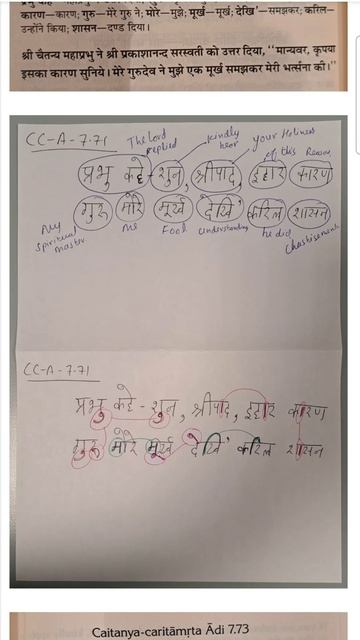 कारण—कारण; गुरु—मेरे गुरु ने; मोरे—मुझे; मूर्ख—मूर्ख; देखि'—समझकर; करिल—
उन्होंने किया; शासन—दण्ड दिया।
श्री चैतन्य महाप्रभु ने श्री प्रकाशानन्द सरस्वती को उत्तर दिया, "मान्यवर, कृपया
इसका कारण सुनिये। मेरे गुरुदेव ने मुझे एक मूर्ख समझकर मेरी भर्त्सना की।"
CC-A-7.71
The Lord replied
kindly hear
your Holiness
of this
Reason
प्रभु कहे - शुन, श्रीपाद, इहार कारण
गुरु मोरे मूर्ख देखि' करिल शासन
My spiritual master
me
Fool
understanding
he did
Chastisement
CC-A-7.71
प्रभु कहे - शुन, श्रीपाद, इहार कारण
गुरु मोरे मूर्ख देखि' करिल शासन
Caitanya-caritāmṛta Ādi 7.73